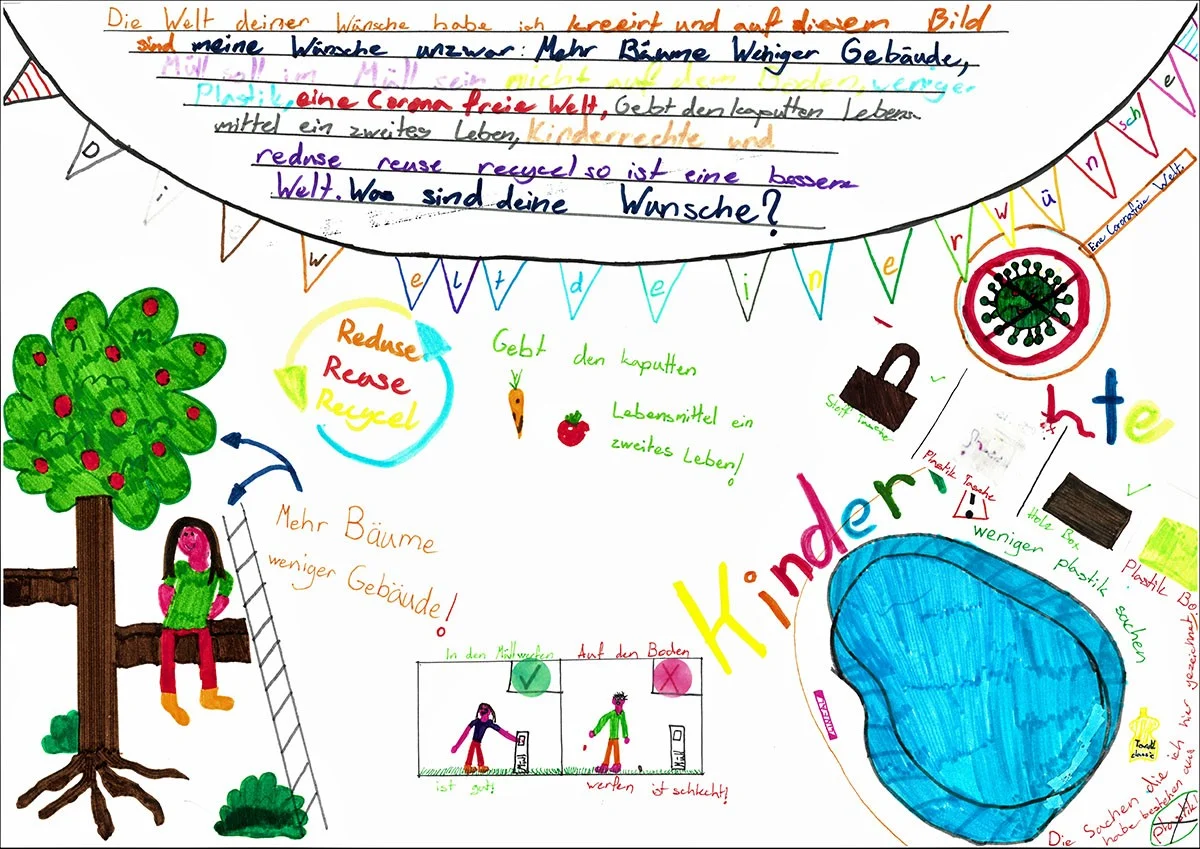 Die Welt deiner Wünsche habe ich kreeirt und auf diesem Bild
sind meine Wünsche unzwar: Mehr Bäume Weniger Gebäude,
Müll soll im Müll sein nicht auf dem Boden, weniger
Plastik, eine Corona freie Welt, Gebt den kaputten Lebens
mittel ein zweites Leben, Kinderrechte und
reduse reuse recycel so ist eine bessere
Welt. Was sind deine Wünsche?
Die Welt deiner Wünsche
Eine Coronafreie Welt.
Reduse
Reuse
Recycel
Gebt den kaputten
Lebensmittel ein
zweites Leben!
Mehr Bäume
weniger Gebäude!
Stoff Tasche
Plastik Tasche
Holz Box
Plastik Bo
weniger plastik sachen
Kinder
hte
In den Müll werfen
Auf den Boden
Müll
Müll
ist gut!
werfen ist schlecht!
Die Sachen die ich hier gezeichnet
habe bestehen aus
Plastik